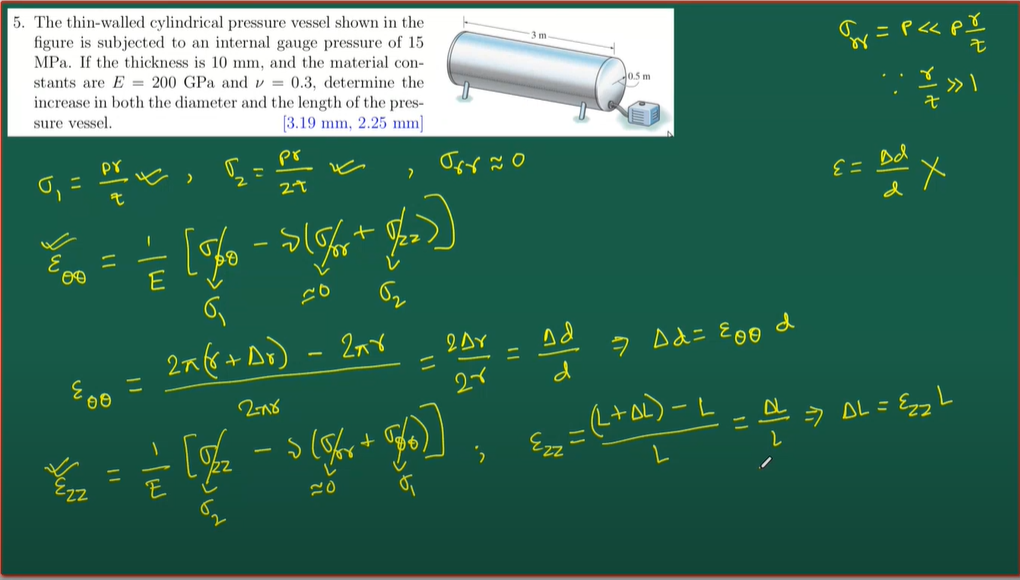 5. The thin-walled cylindrical pressure vessel shown in the
figure is subjected to an internal gauge pressure of 15
MPa. If the thickness is 10 mm, and the material con-
stants are E = 200 GPa and ν = 0.3, determine the
increase in both the diameter and the length of the pres-
sure vessel. [3.19 mm, 2.25 mm]
3 m
0.5 m
σ_rr = P << P r/t
∵ r/t >> 1
σ_1 = pr/t , σ_2 = pr/2t , σ_rr ≈ 0
ε = Δd/d X
ε_θθ = 1/E [σ_θθ - ν(σ_rr + σ_zz)]
σ_1 ≈0 σ_2
ε_θθ = 2π(r + Δr) - 2πr / 2πr = 2Δr/2r = Δd/d ⇒ Δd = ε_θθ d
ε_zz = 1/E [σ_zz - ν(σ_rr + σ_θθ)] ; ε_zz = (L+ΔL) - L / L = ΔL/L ⇒ ΔL = ε_zz L
σ_2 ≈0 σ_1